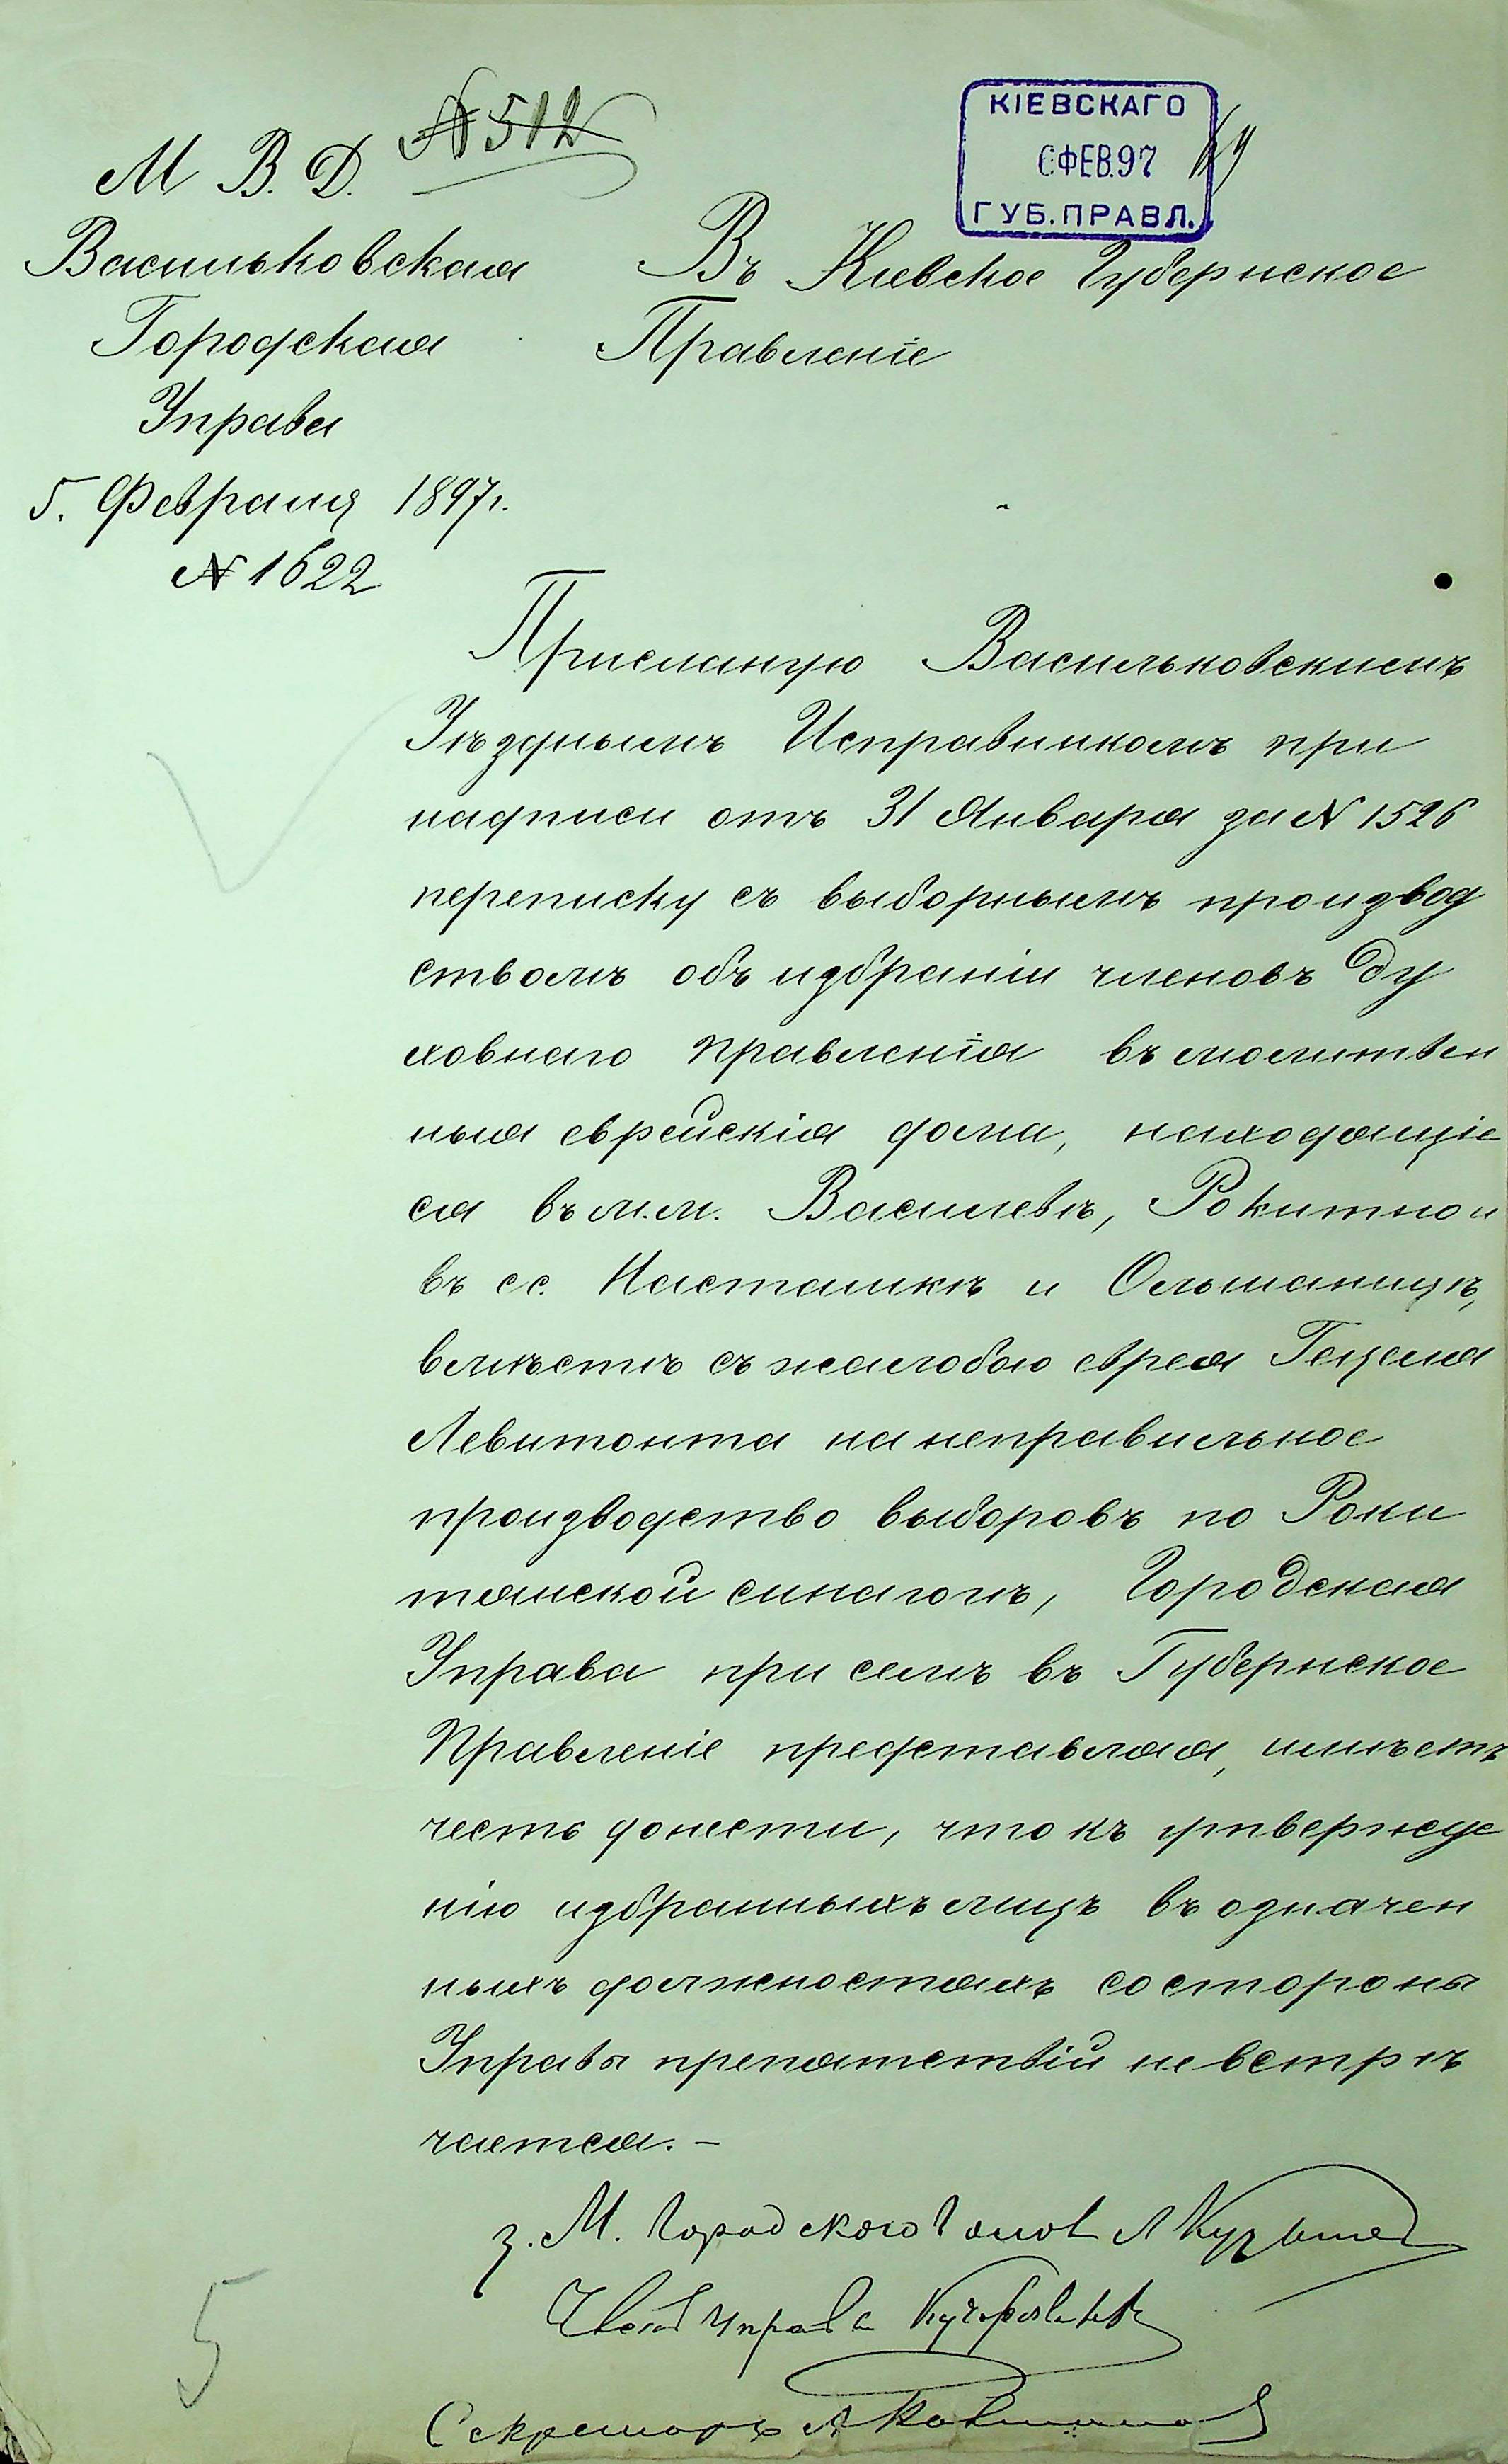 № 512
КІЕВСКАГО
6 ФЕВ.97
ГУБ.ПРАВЛ.
М В. Д.
Васильковская
Городская
Управа
5. Февраля 1897г.
№ 1622
Въ Киевское Губернское
Правленіе
Присланую Васильковскимъ
Уѣзднымъ Исправникомъ при
надписи отъ 31 Января за № 1526
переписку съ выборнымъ производ
ствомъ объ избраніи членовъ Ду
ховнаго правленія въ молитвен
ныя еврейскія дома, находящіе
ся въ м.м. Василевѣ, Рокитной
въ сс. Насташкѣ и Ольшаницѣ,
вмѣстѣ съ жалобою еврея Гецеля
Левитонта на неправильное
производство выборовъ по Роки
тянской синагогѣ, Городская
Управа при семъ въ Губернское
Правленіе представляя, имѣетъ
честь донести, что къ утвержде
нію избранныхъ лицъ въ означен
ныхъ должностяхъ со стороны
Управы препятствій не встрѣ
чается. –
з. М. Городского Голов А
Членъ Управы
Секретарь А
5